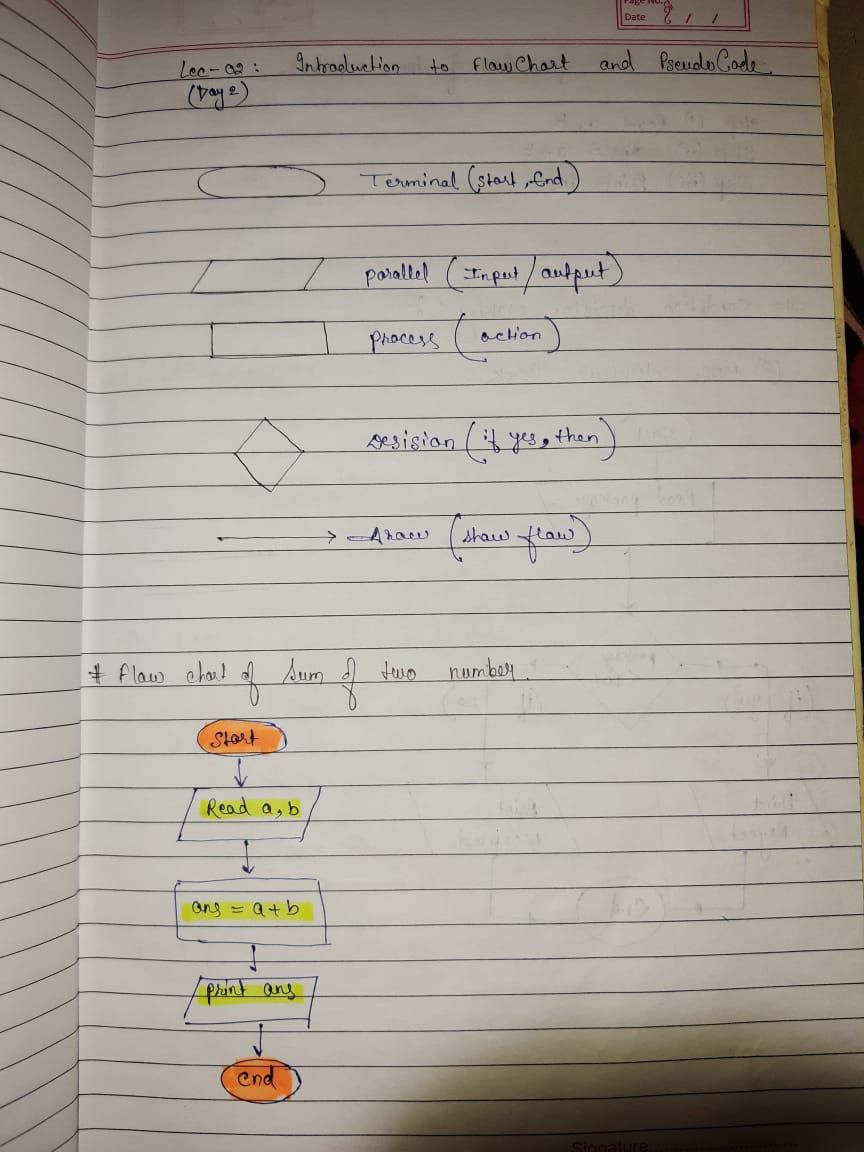 Page No.
Date / /
Lec-02: Introduction to FlowChart and PseudoCode
(Day 2)
Terminal (Start, End)
parallel (Input/output)
process (action)
Desisian (if yes, then)
Arrow (show flow)
# Flow chart of Sum of two number.
Start
Read a, b
ans = a+b
print ans
End
Signature